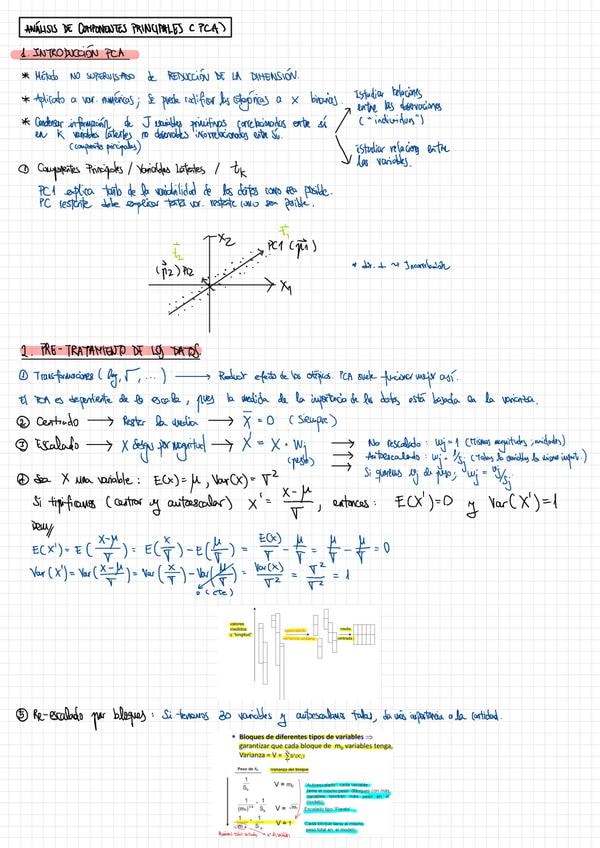 ANÁLISIS DE COMPONENTES PRINCIPALES (PCA)
1. INTRODUCCIÓN PCA
* Método NO SUPERVISADO de REDUCCIÓN DE LA DIMENSIÓN.
* Aplicado a var. numéricas; Se puede codificar las categóricas a X binarias.
* Condensar información de J variables primitivas (correlacionadas entre sí
en K variables latentes no observables incorrelacionadas entre sí.
(componentes principales)
Estudiar relaciones
entre las observaciones
("individuos")
Estudiar relaciones entre
las variables.
① Componentes Principales / Variables Latentes / tK
PC1 explica tanto de la variabilidad de los datos como sea posible.
PC restante debe explicar tanta var. restante como sea posible.
X2
t2
t1
PC1 (p1)
(p2) PC2
X1
* dir. ⊥ ~ Incorrelación
2. PRE-TRATAMIENTO DE LOS DATOS
① Transformaciones (log, √, ...) → Reducir efecto de los atípicos. PCA suele funcionar mejor así.
El PCA es dependiente de la escala, pues la medida de la importancia de los datos está basada en la varianza.
② Centrado → Restar la media → X̄ = 0 (siempre)
③ Escalado → X desigu. por magnitud → X' = X · Wj
(peso)
→ No Rescalado: wj = 1 (mismas magnitudes, unidades)
→ Autoescalado: wj = 1/Sj (todas las variables la misma import.)
→ Si queremos vj de peso, wj = vj/Sj
④ Sea X una variable: E(X) = μ, Var(X) = σ²
Si tipificamos (centrar y autoescalar) X' = (X-μ)/σ, entonces: E(X') = 0 y Var(X') = 1
Dem//
E(X') = E((X-μ)/σ) = E(X/σ) - E(μ/σ) = E(X)/σ - μ/σ = μ/σ - μ/σ = 0
Var(X') = Var((X-μ)/σ) = Var(X/σ) - Var(μ/σ) = Var(X)/σ² = σ²/σ² = 1
0 (cte)
valores
medidos
y "longitud"
media
centrada
⑤ Re-escalado por bloques: Si tenemos 30 variables y autoescalamos todas, da más importancia a la cantidad.
• Bloques de diferentes tipos de variables ⇒
garantizar que cada bloque de mb variables tenga,
Varianza = V =
Peso de Xk Varianza del bloque
1/Sk V = mb
"Autoescalado": cada variable
tiene el mismo peso (Bloques con más
variables tendrán más peso en el
modelo)
1/(mb)^1/4 · 1/Sk V = √mb
Escalado tipo "Pareto"
1/√mb · 1/Sk V = 1
Cada bloque tiene el mismo
peso total en el modelo